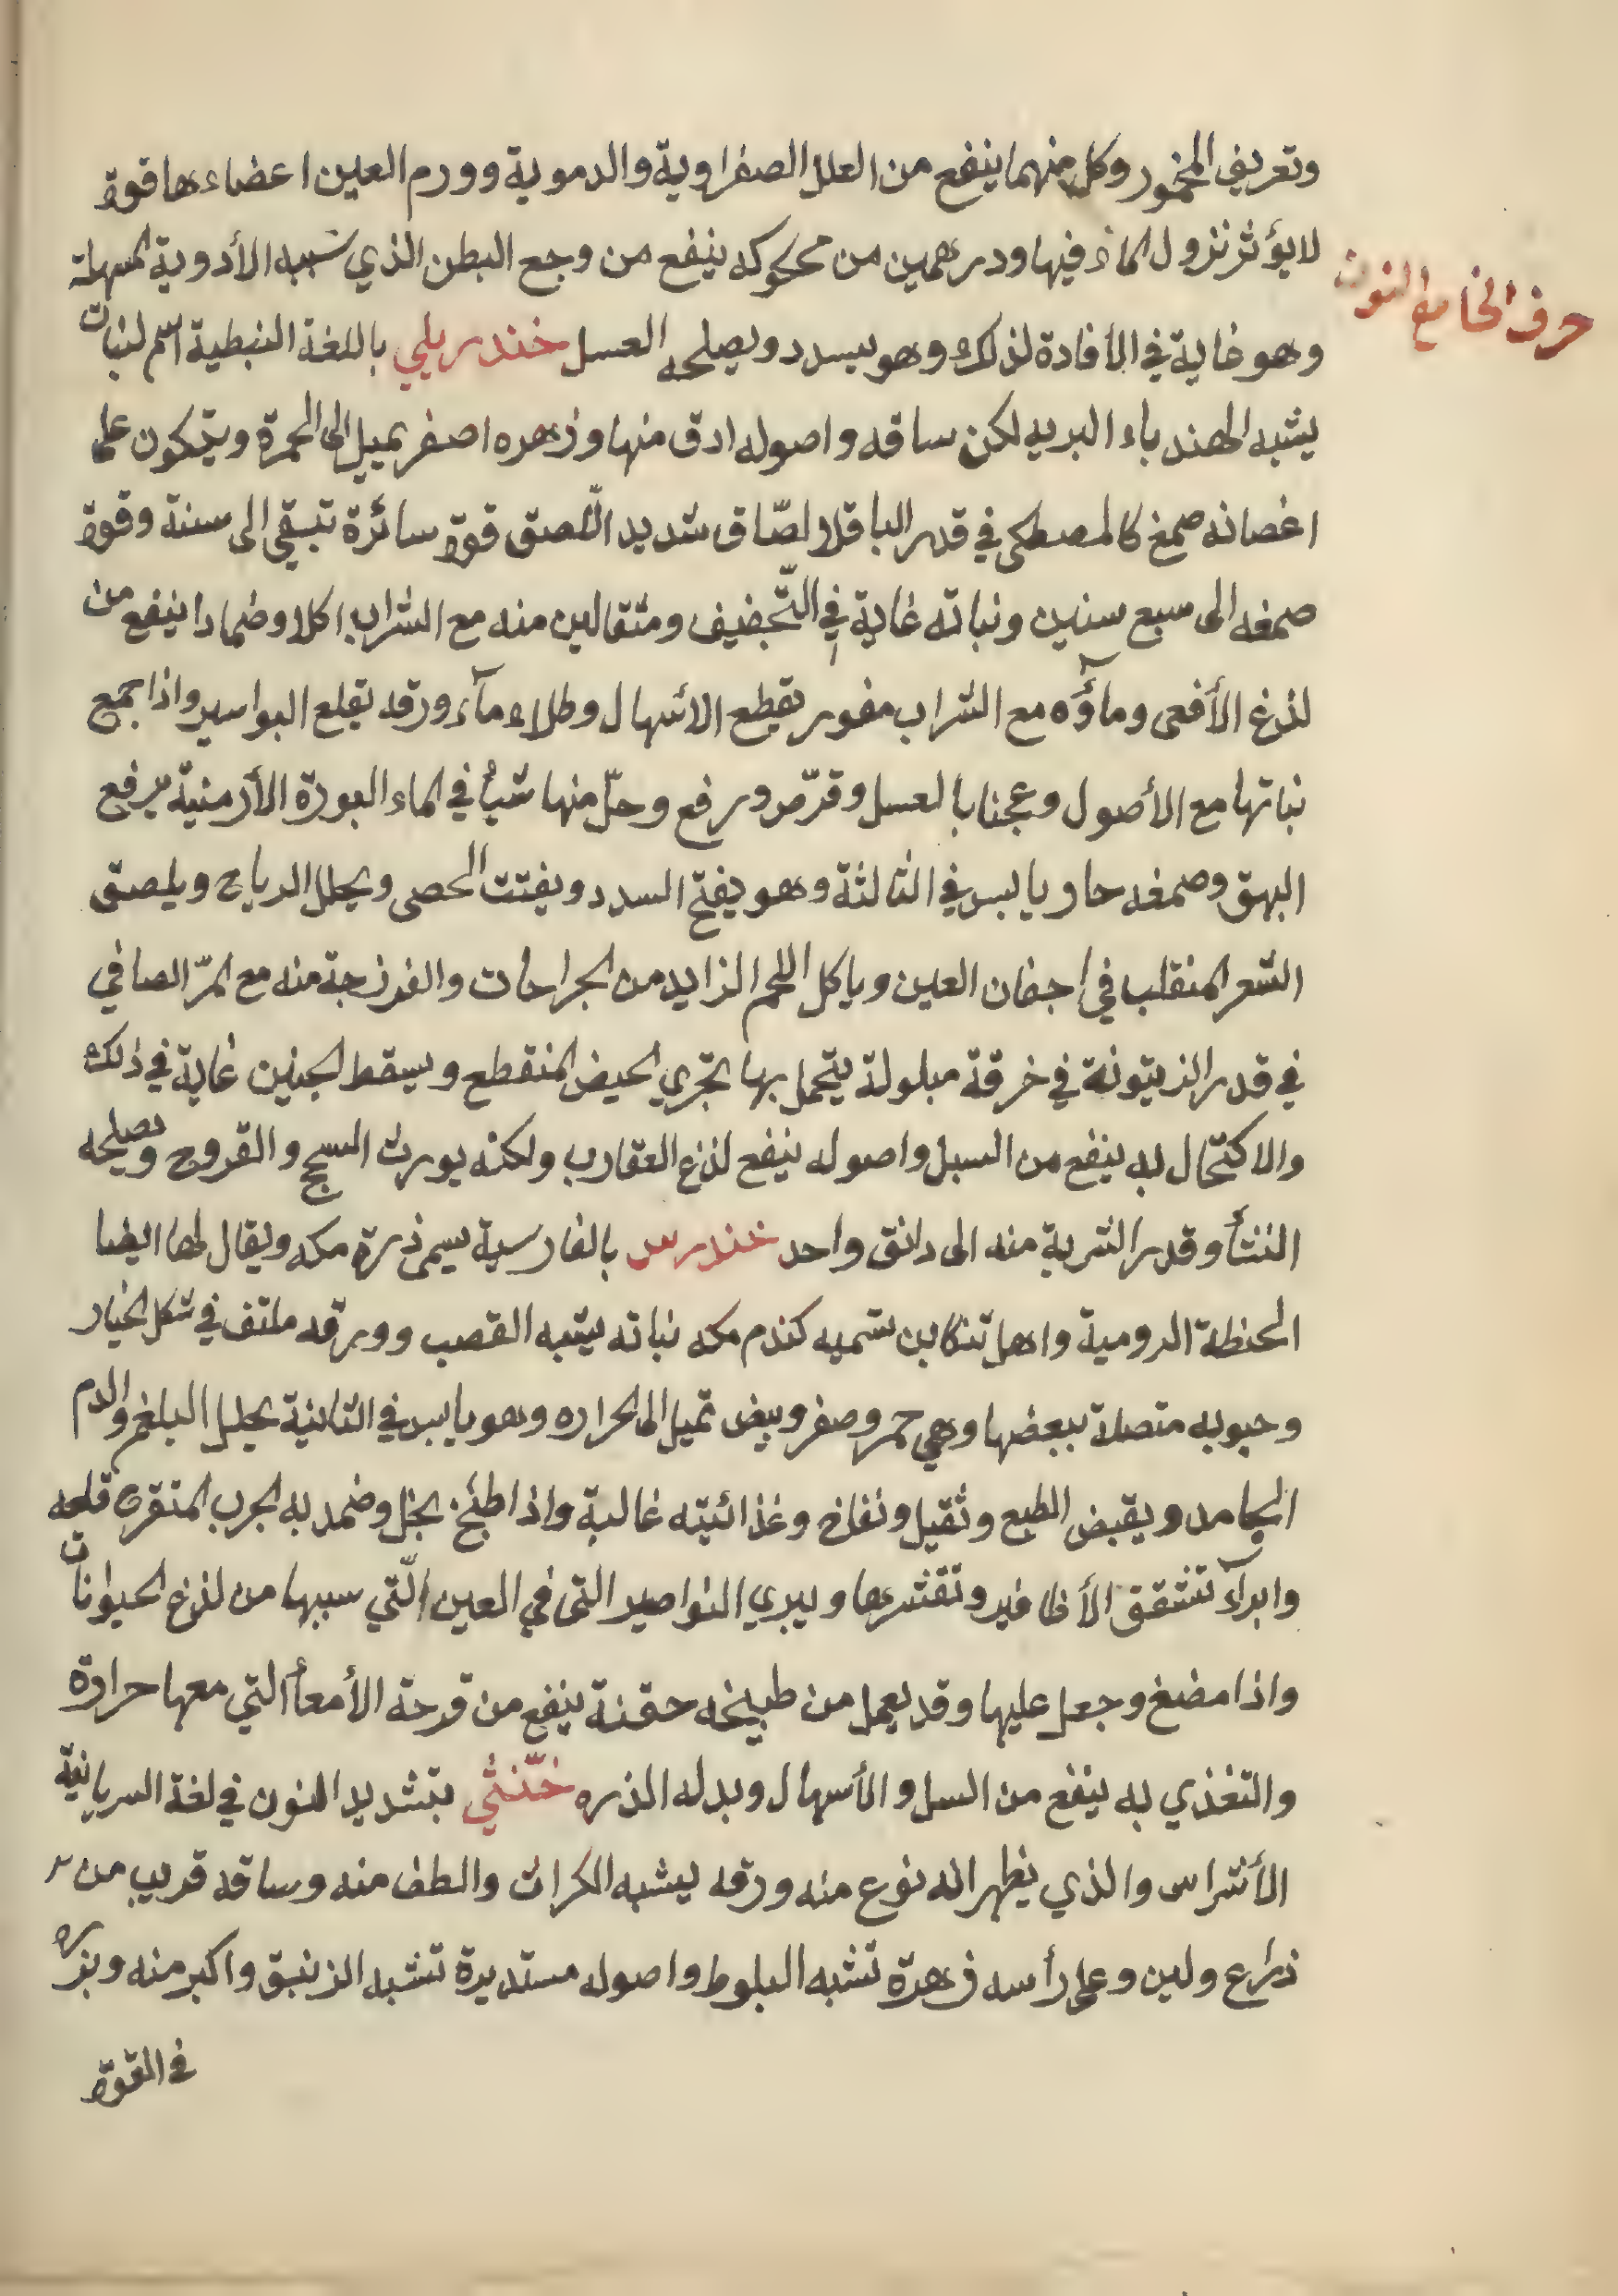 وتعريف المخمور وكل منهما ينفع من العلل الصفراوية والدموية وورم العين اعضاءها قوة
لا يؤثر نزول الماء فيها ودرهمين من محكوكه ينفع من وجع البطن الذي سببه الأدوية المسهلة
حرف الخا مع النون
وهو غاية في الأفادة لذلك وهو يسدد ويصلحه العسل خندريلي باللغة النبطية اسم لنبات
يشبه الهندباء البريه لكن ساقه واصوله ادق منها وزهره اصفر يميل الى الحمرة ويتكون على
اغصانه صمغ كالمصطكى في قدر الباقلا لصّاق شديد اللّصق قوة سائرة تبقى الى سنة وقوة
صمغه الى سبع سنين ونباته غاية في التّجفيف ومثقالين منه مع الشراب اكلا وضمادا ينفع من
لذغ الأفعى وماؤه مع الشراب مفور يقطع الأسهال وطلاء مآء ورقه يقلع البواسير واذا جمع
نباتها مع الأصول وعجنا بالعسل وقرّص ورفع وحلّ منها شيأ في الماء البورة الأرمنية يرفع
البهق وصمغه حار يابس في الثالثة وهو يفتح السدد ويفتت الحصى ويحلل الرياح ويلصق
الشعر المنقلب في اجفان العين وياكل اللحم الزايد من الجراحات والفرزجة منه مع المرّ الصافي
في قدر الزيتونة في خرقة مبلولة يتحمل بها تجري الحيض المنقطع ويسقط الجنين غاية في ذلك
والاكتحال به ينفع من السبل واصوله ينفع لذغ العقارب ولكنه يورث السحج والقروح ويصلحه
النشأ وقدر الشربة منه الى دانق واحد خندرس بالفارسية يسمى ذرة مكه ويقال لها ايضا
الحنطة الرومية واهل تنكابن تسميه كندم مكه نباته يشبه القصب وورقه ملتف في شكل الخيار
وحبوبه متصلة ببعضها وهي حمر وصفر وبيض تميل الى الحراره وهو يابس في الثانية يحلل البلغم والدم
الجامد ويقبض الطبع وثقيل ونفاخ وغذائيته غالبة واذا طبخ بخل وضمد به الجرب المتقرح قلعه
وابرآ تشقق الأظافير وتقشرها ويبري النواصير التى في العين الّتي سببها من لذغ الحيوانات
واذا مضغ وجعل عليها وقد يعمل من طبيخه حقنة ينفع من قرحة الأمعأ التي معها حرارة
والتغذي به ينفع من السل والأسهال وبدله الذره خنّثى بتشديد النون في لغة السريانية
الأشراس والذي يظهر انه نوع منه ورقه يشبه الكراث والطف منه وساقه قريب من
ذراع ولين وعلى رأسه زهرة تشبه البلوط واصوله مستديرة تشبه الزنبق واكبر منه وبزره
في القوة